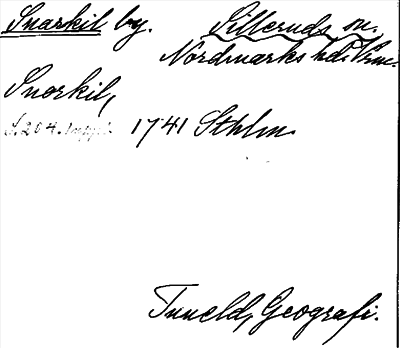 Snarkil by. Silleruds sn.
Nordmarks hd. Vrml.
Snorkil,
S. 204. 1741 Sthlm.
Tuneld, Geografi.